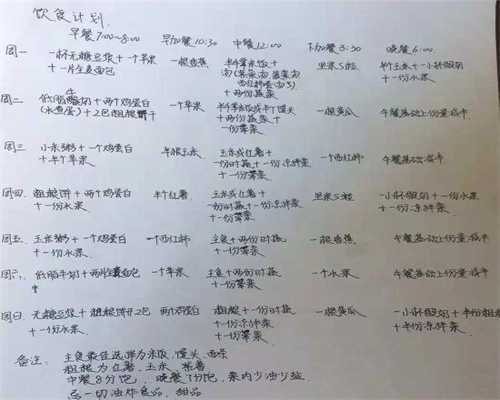 饮食计划
早餐7:00-8:00 早加餐10:30 中餐12:00 下加餐3:30 晚餐6:00
周一 一杯无糖豆浆+一个苹果 一根香蕉 半个玉米+一小杯酸奶
+一片全麦面包 坚果5粒 +一份水果
+两份时蔬
周二 +两个鸡蛋白 一个苹果 一根黄瓜 午餐基础上份量减半
(水煮蛋)+2包粗粮饼干 +两份时蔬+
一份荤菜
周三 小米粥+一个鸡蛋白 半根玉米 玉米或红薯+ 一个西红柿 午餐基础上减半
+半个苹果 一份时蔬+一份凉拌菜
+一份荤菜
周四 粗粮饼+两个鸡蛋白 半个红薯 玉米或红薯+ 坚果5粒 一小杯酸奶+一份水果
+一份水果 一份时蔬+一份凉拌菜 +一份凉拌菜
+一份荤菜
周五 玉米粥+一个鸡蛋白 一个西红柿 主食+两份时蔬 一根香蕉 午餐基础上份量减半
+一份水果 +一份荤菜
周六 低脂牛奶+两片全麦面包 一个苹果 主食+两份时蔬 一个水果 午餐基础上份量减半
+一份荤菜
周日 无糖豆浆+粗粮饼干2包 两个鸡蛋白 粗粮+一份时蔬 一根黄瓜 一小杯酸奶+半份粗粮
+一份水果 +一份凉拌菜 +半份凉拌菜
+一份荤菜
备注: 主食最佳选择为米饭、馒头、
粗粮为红薯、玉米、紫薯
中餐8分饱, 晚餐7分饱, 菜内少油少盐
忌一切油炸食品、甜品